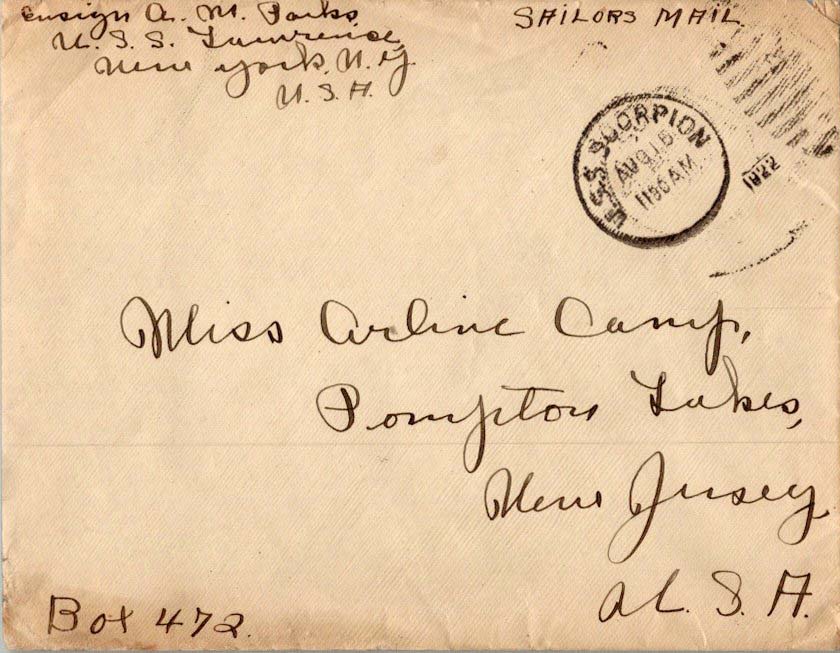 Ensign A. M. Parks
U. S. S. Lawrence,
New York, N. Y.
U. S. A.
SAILORS MAIL
U.S.S. SCORPION
AUG 16
1130 AM
1922
Miss Arline Camp,
Pompton Lakes,
New Jersey
U. S. A.
Box 472.